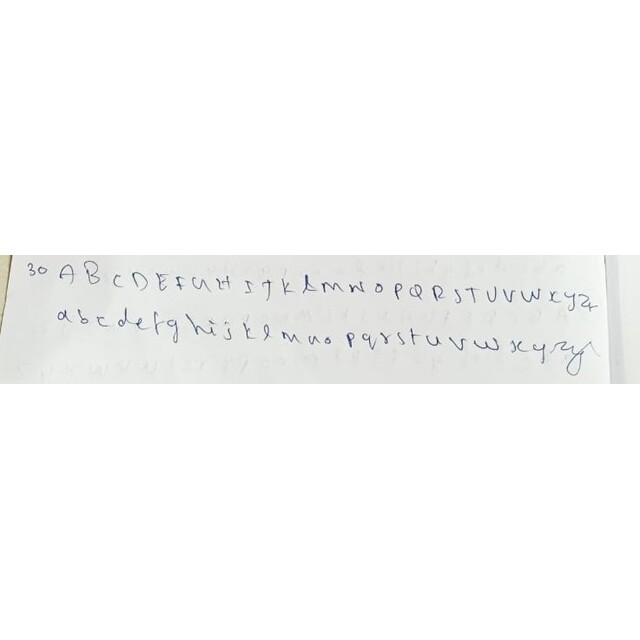 30 A B C D E F G H I J K L M N O P Q R S T U V W X Y Z
a b c d e f g h i j k l m n o p q r s t u v w x y z